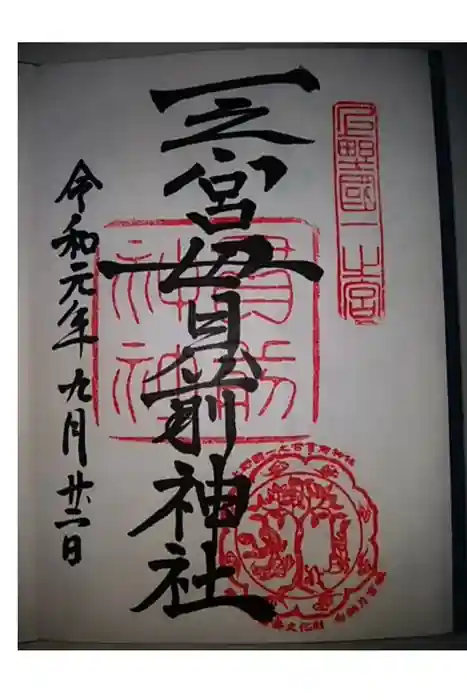 上野國一之宮
一之宮貫前神社
貫前神社
令和元年九月廿二日